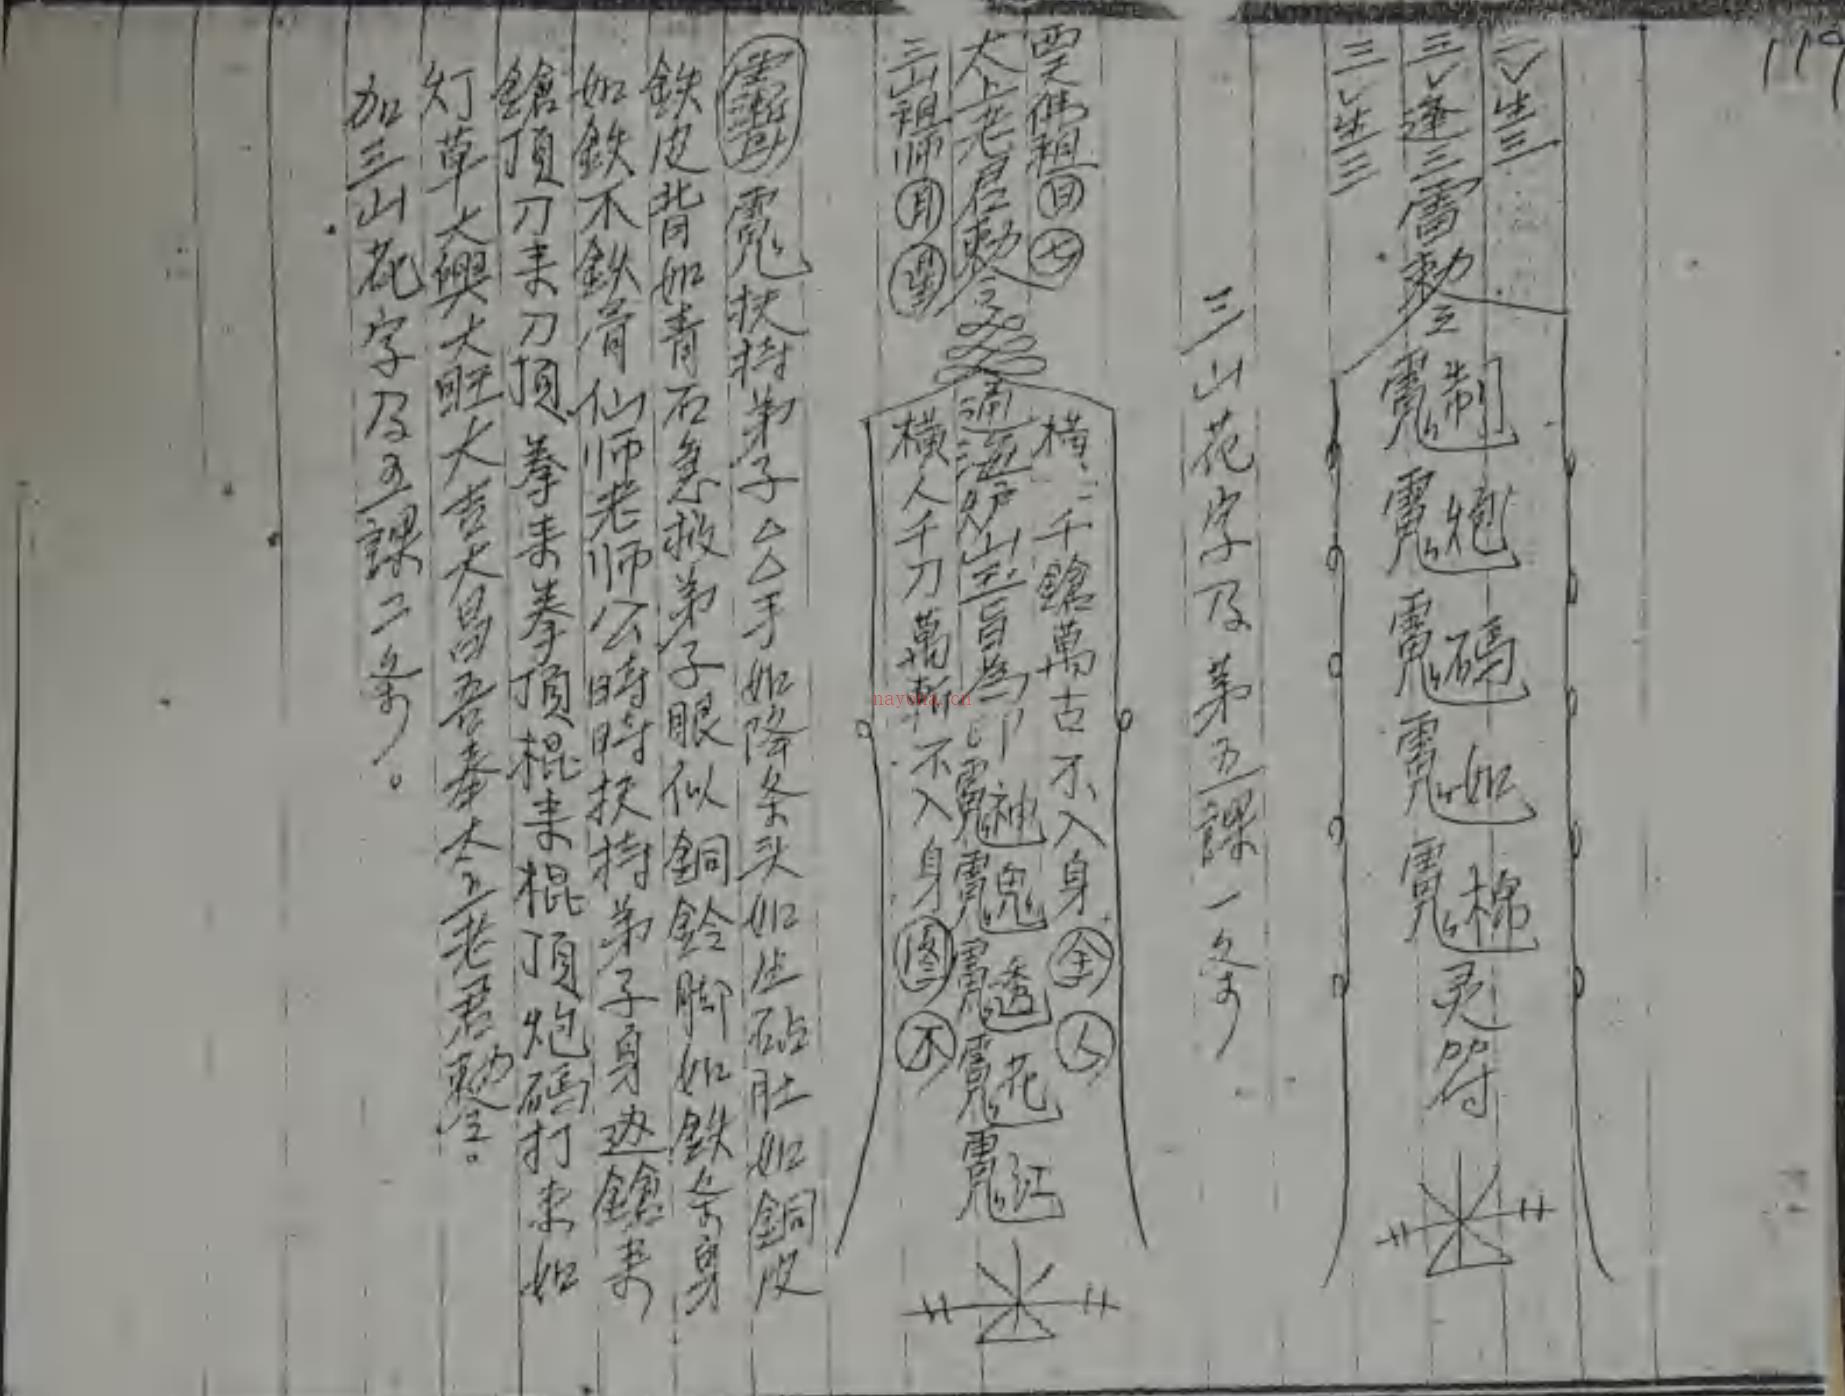 119
二 生三
三 逢三雷勅令
三 生三
制
炮
碼
如
棉
灵符
三山花字及第五課一条
佛祖 日 七
太上老君勅令
三山祖师 月
横 千鎗萬古不入身 全 人
通 海 炉山 旨為印 神 鬼 透 花 江
横人千刀萬斬不入身 图 不
扶持弟子△△手如降条头如 砧肚如銅皮
鉄皮背如青石急救弟子眼似銅鈴脚如鉄条身
如鉄木鉄骨仙师老师公時時扶持弟子身边鎗来
鎗頂刀来刀頂拳来拳頂棍来棍頂炮碼打来如
灯草大興大旺大吉大昌吾奉太上老君勅令。
加三山花字及五課二条。
nayona.cn